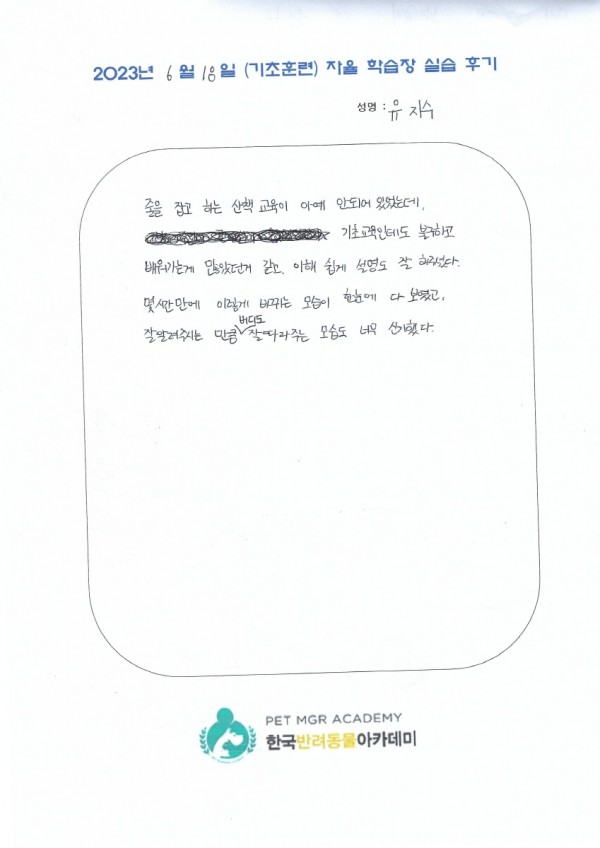 2023년 6월 18일 (기초훈련) 자율 학습장 실습 후기
성명 : 유지수
줄을 잡고 하는 산책 교육이 아예 안되어 있었는데,
기초교육인데도 복구하고
배워가는게 많았던거 같고, 이해 쉽게 설명도 잘 해주셨다.
몇시간만에 이렇게 바뀌는 모습이 한눈에 다 보였고,
잘알려주시는 만큼 버디도 잘따라주는 모습도 너무 신기했다.
PET MGR ACADEMY
한국반려동물아카데미